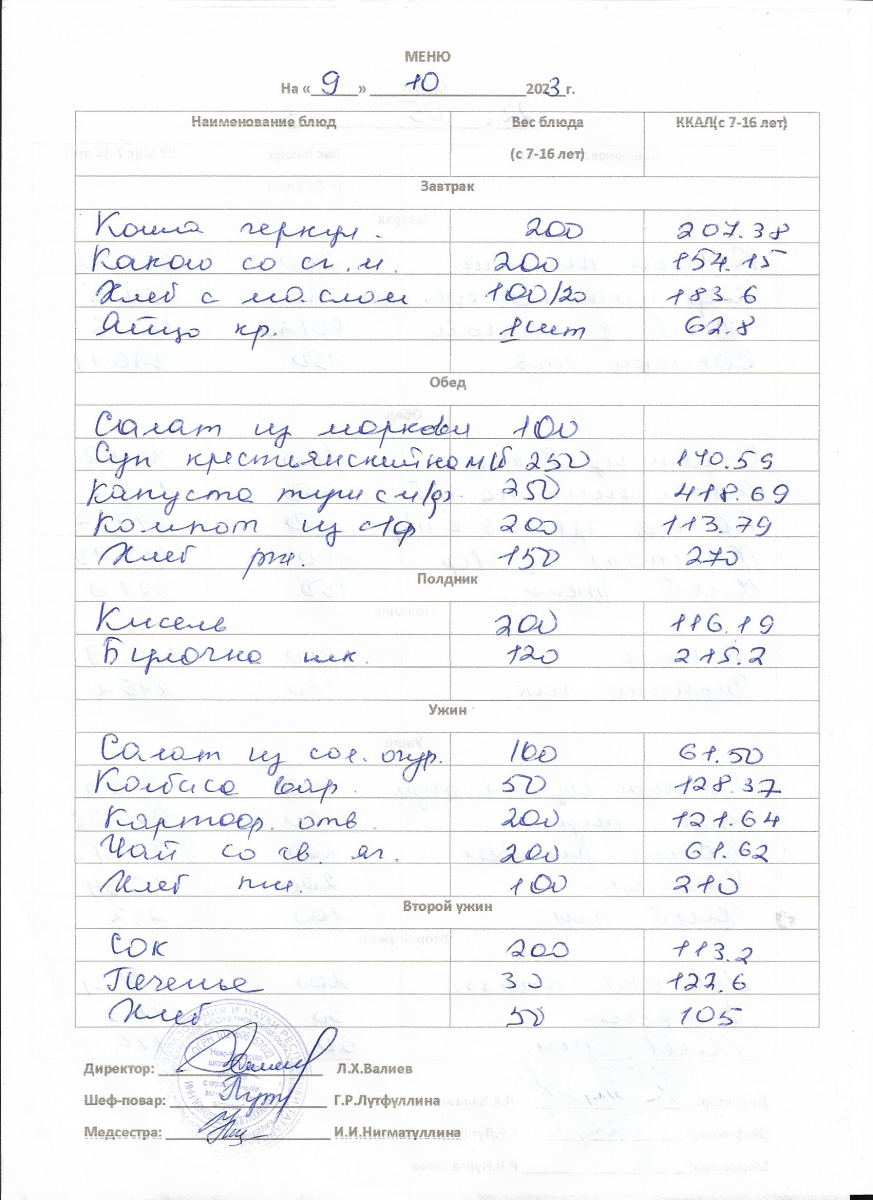 МЕНЮ
На « 9 » 10 2023 г.
Наименование блюд Вес блюда (с 7-16 лет) ККАЛ(с 7-16 лет)
Завтрак
Каша геркул. 200 207.38
Какао со сг. м. 200 154.15
Хлеб с маслом 100/20 183.6
Яйцо кр. 1шт 62.8
Обед
Салат из моркови 100
Суп крестьянский на м/б 250 140.59
Капуста туш с м/г. 250 418.69
Компот из с/ф 200 113.79
Хлеб рж. 150 270
Полдник
Кисель 200 116.19
Булочка шк. 120 215.2
Ужин
Салат из сол. огур. 100 61.50
Колбаса вар. 50 128.37
Картоф. отв. 200 121.64
Чай со св. яг. 200 61.62
Хлеб пш. 100 210
Второй ужин
Сок 200 113.2
Печенье 30 122.6
Хлеб 50 105
Директор: Л.Х.Валиев
Шеф-повар: Г.Р.Лутфуллина
Медсестра: И.И.Нигматуллина